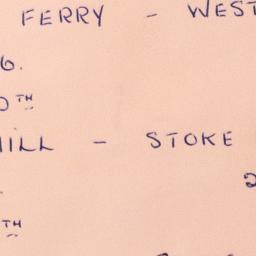 FERRY - WEST
6.
TH
HILL - STOKE
2
TH